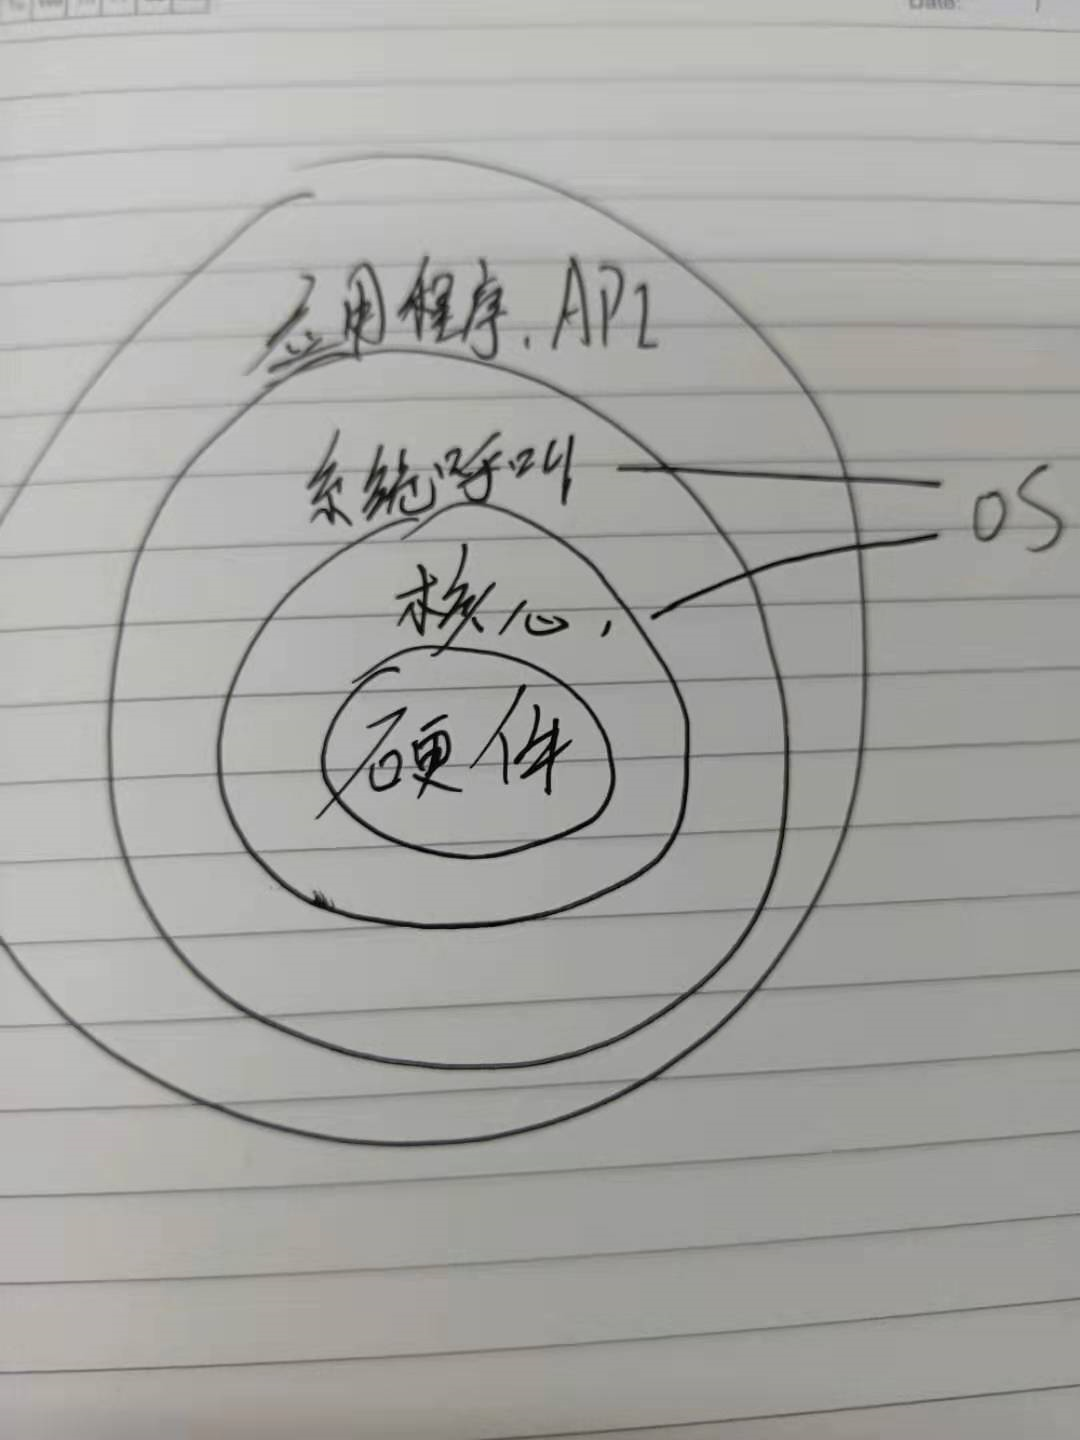 Date:
应用程序.API
系统呼叫
OS
核心,
硬件